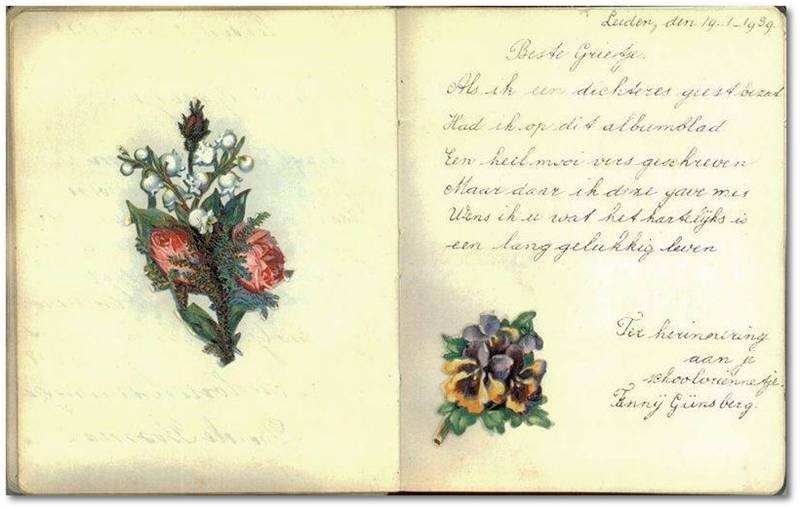 Leiden, den 19-1-1939.
Beste Grietje.
Als ik een dichteres geest bezat
Had ik op dit albumblad
Een heil mooi vers geschreven
Maar daar ik deze gave mis
Wens ik u wat het hartelijks is
een lang gelukkig leven
Ter herinnering
aan je
schoolvriennetje.
Fennij Günsberg.